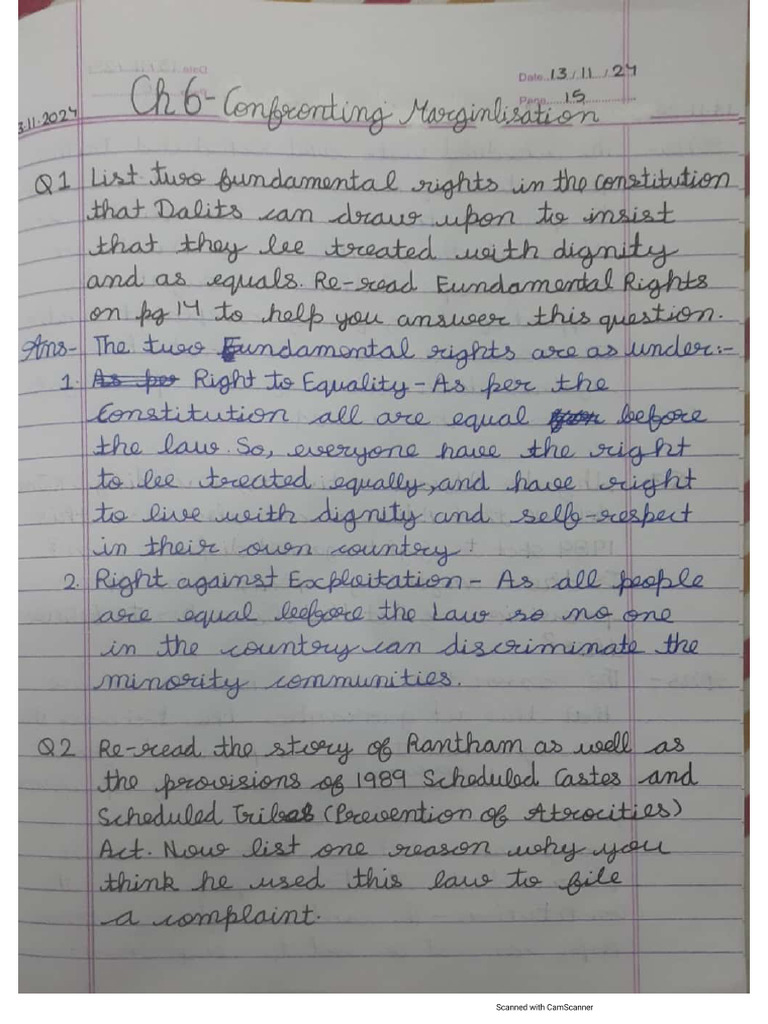 Date 13/11/24
Page 15
3.11.2024
Ch 6- Confronting Marginlisation
Q1 List two fundamental rights in the constitution
that Dalits can draw upon to insist
that they be treated with dignity
and as equals. Re-read Fundamental Rights
on pg 14 to help you answer this question.
Ans- The two Fundamental rights are as under:-
1. As per Right to Equality - As per the
Constitution all are equal before
the law. So, everyone have the right
to be treated equally, and have right
to live with dignity and self-respect
in their own country.
2. Right against Exploitation - As all people
are equal before the Law so no one
in the country can discriminate the
minority communities.
Q2 Re-read the story of Rantham as well as
the provisions of 1989 Scheduled Castes and
Scheduled Tribes (Prevention of Atrocities)
Act. Now list one reason why you
think he used this law to file
a complaint.
Scanned with CamScanner